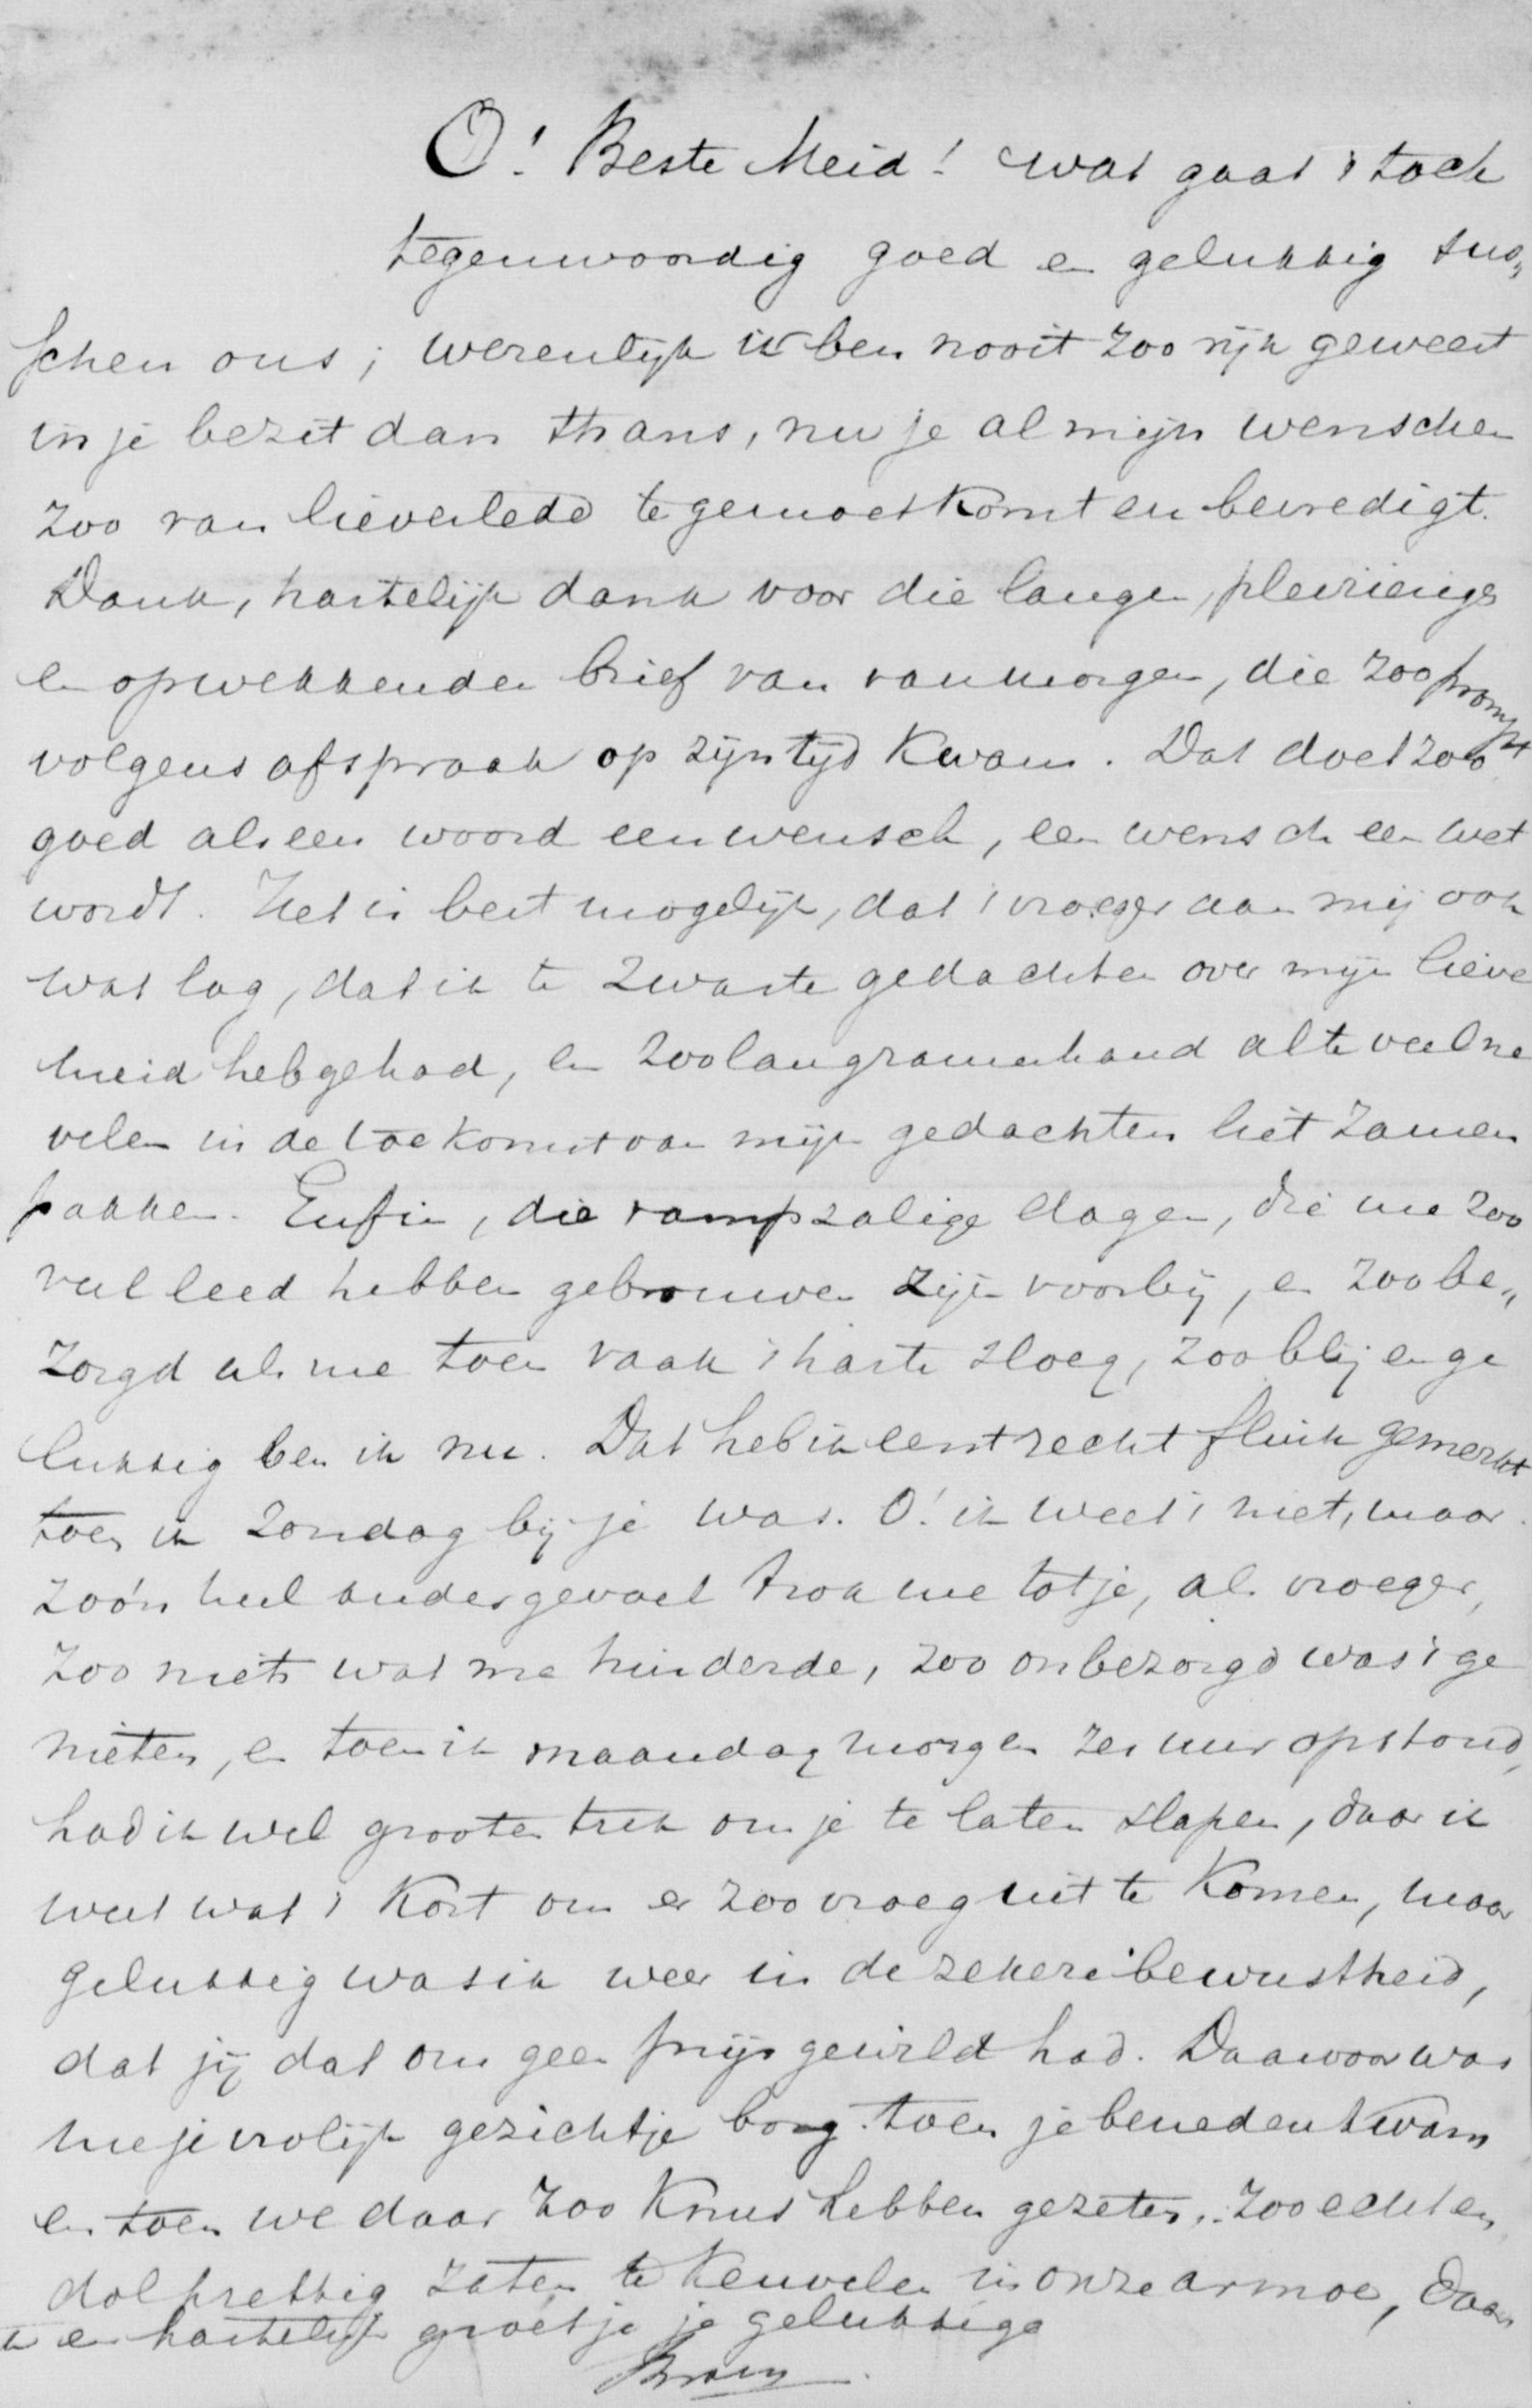 O! Beste Meid! wat gaat 't toch
tegenwoordig goed en gelukkig tus„
schen ons; werentlijk ik ben nooit zoo rijk geweest
in je bezit dan thans, nu je al mijn wenschen
zoo van lieverlede te gemoet komt en bevredigt.
Dank, hartelijk dank voor die langen, pleizierige
en opwekkenden brief van vanmorgen, die zoo prompt
volgens afspraak op zijn tijd kwam. Dat doet zoo
goed als een woord een wensch, een wensch een wet
wordt. Het is best mogelijk, dat 't vroeger aan mij ook
wat lag, dat ik te zwarte gedachten over mijn lieve
meid heb gehad, en zoolangzamerhand al te veel ne
velen in de toekomst van mijn gedachten liet zamen
pakken. Enfin, die rampzalige dagen, die me zoo
veel leed hebben gebrouwen zijn voorbij, en zoo be„
zorgd als me toen vaak 't harte sloeg, zoo blij en ge
lukkig ben ik nu. Dat heb ik eerst recht flink gemerkt
toen ik Zondag bij je was. O! ik weet 't niet, maar
zóó'n heel ander gevoel trok me tot je, als vroeger,
zoo niets wat me hinderde, zoo onbezorgd was 't ge
nieten, en toen ik maandagmorgen zes uur opstond,
had ik wel grooten trek om je te laten slapen, daar ik
weet wat 't kost om er zoo vroeg uit te komen, maar
gelukkig was ik weer in de zekere bewustheid,
dat jij dat om geen prijs gewild had. Daarvoor was
me je vrolijk gezichtje borg toen je beneden kwam
en toen we daar zoo knus hebben gezeten, zoo echt en
dol prettig zaten te keuvelen in onze armoe, daar
en hartelijk groetje je gelukkige
Bram